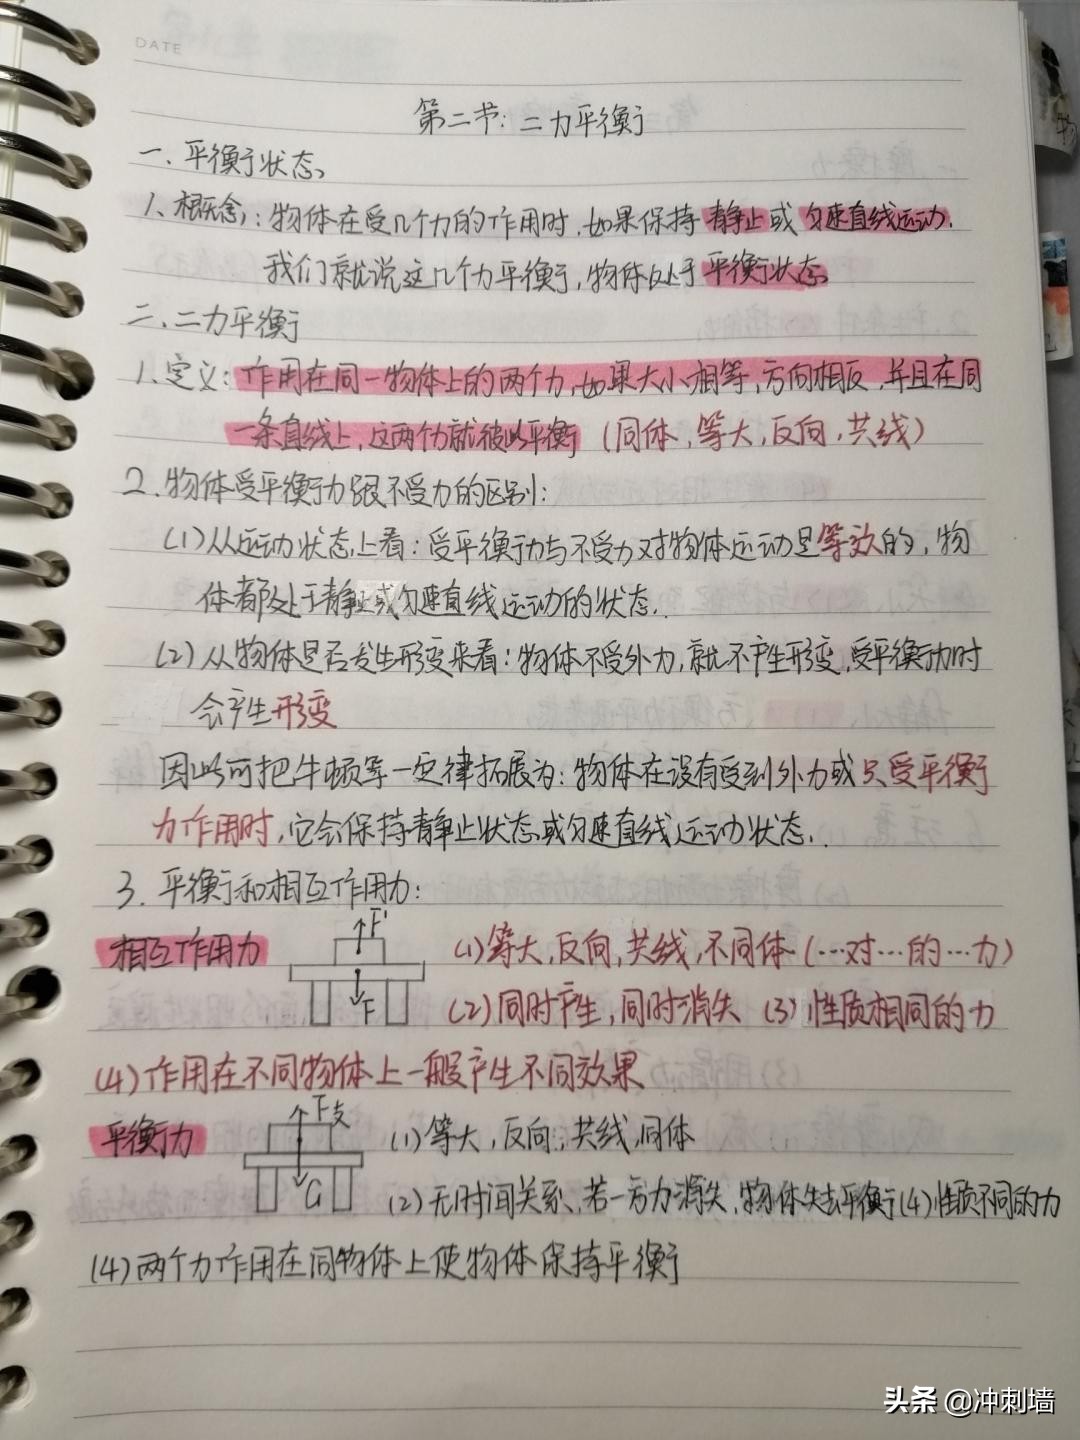 DATE
第二节：二力平衡
一、平衡状态
1、概念：物体在受几个力的作用时，如果保持静止或匀速直线运动，
我们就说这几个力平衡，物体处于平衡状态
二、二力平衡
1、定义：作用在同一物体上的两个力，如果大小相等，方向相反，并且在同
一条直线上，这两个力就彼此平衡（同体，等大，反向，共线）
2、物体受平衡力跟不受力的区别：
(1)从运动状态上看：受平衡力与不受力对物体运动是等效的，物
体都处于静止或匀速直线运动的状态．
(2)从物体是否发生形变来看：物体不受外力，就不产生形变，受平衡力时
会产生形变
因此可把牛顿第一定律拓展为：物体在没有受到外力或只受平衡
力作用时，它会保持静止状态或匀速直线运动状态．
3．平衡和相互作用力：
相互作用力 F' (1)等大，反向，共线，不同体(…对…的…力)
F (2)同时产生，同时消失 (3)性质相同的力
(4)作用在不同物体上一般产生不同效果
平衡力 F支 (1)等大，反向，共线，同体
G (2)无时间关系，若一方力消失，物体失去平衡(4)性质不同的力
(4)两个力作用在同物体上使物体保持平衡
头条 @冲刺墙